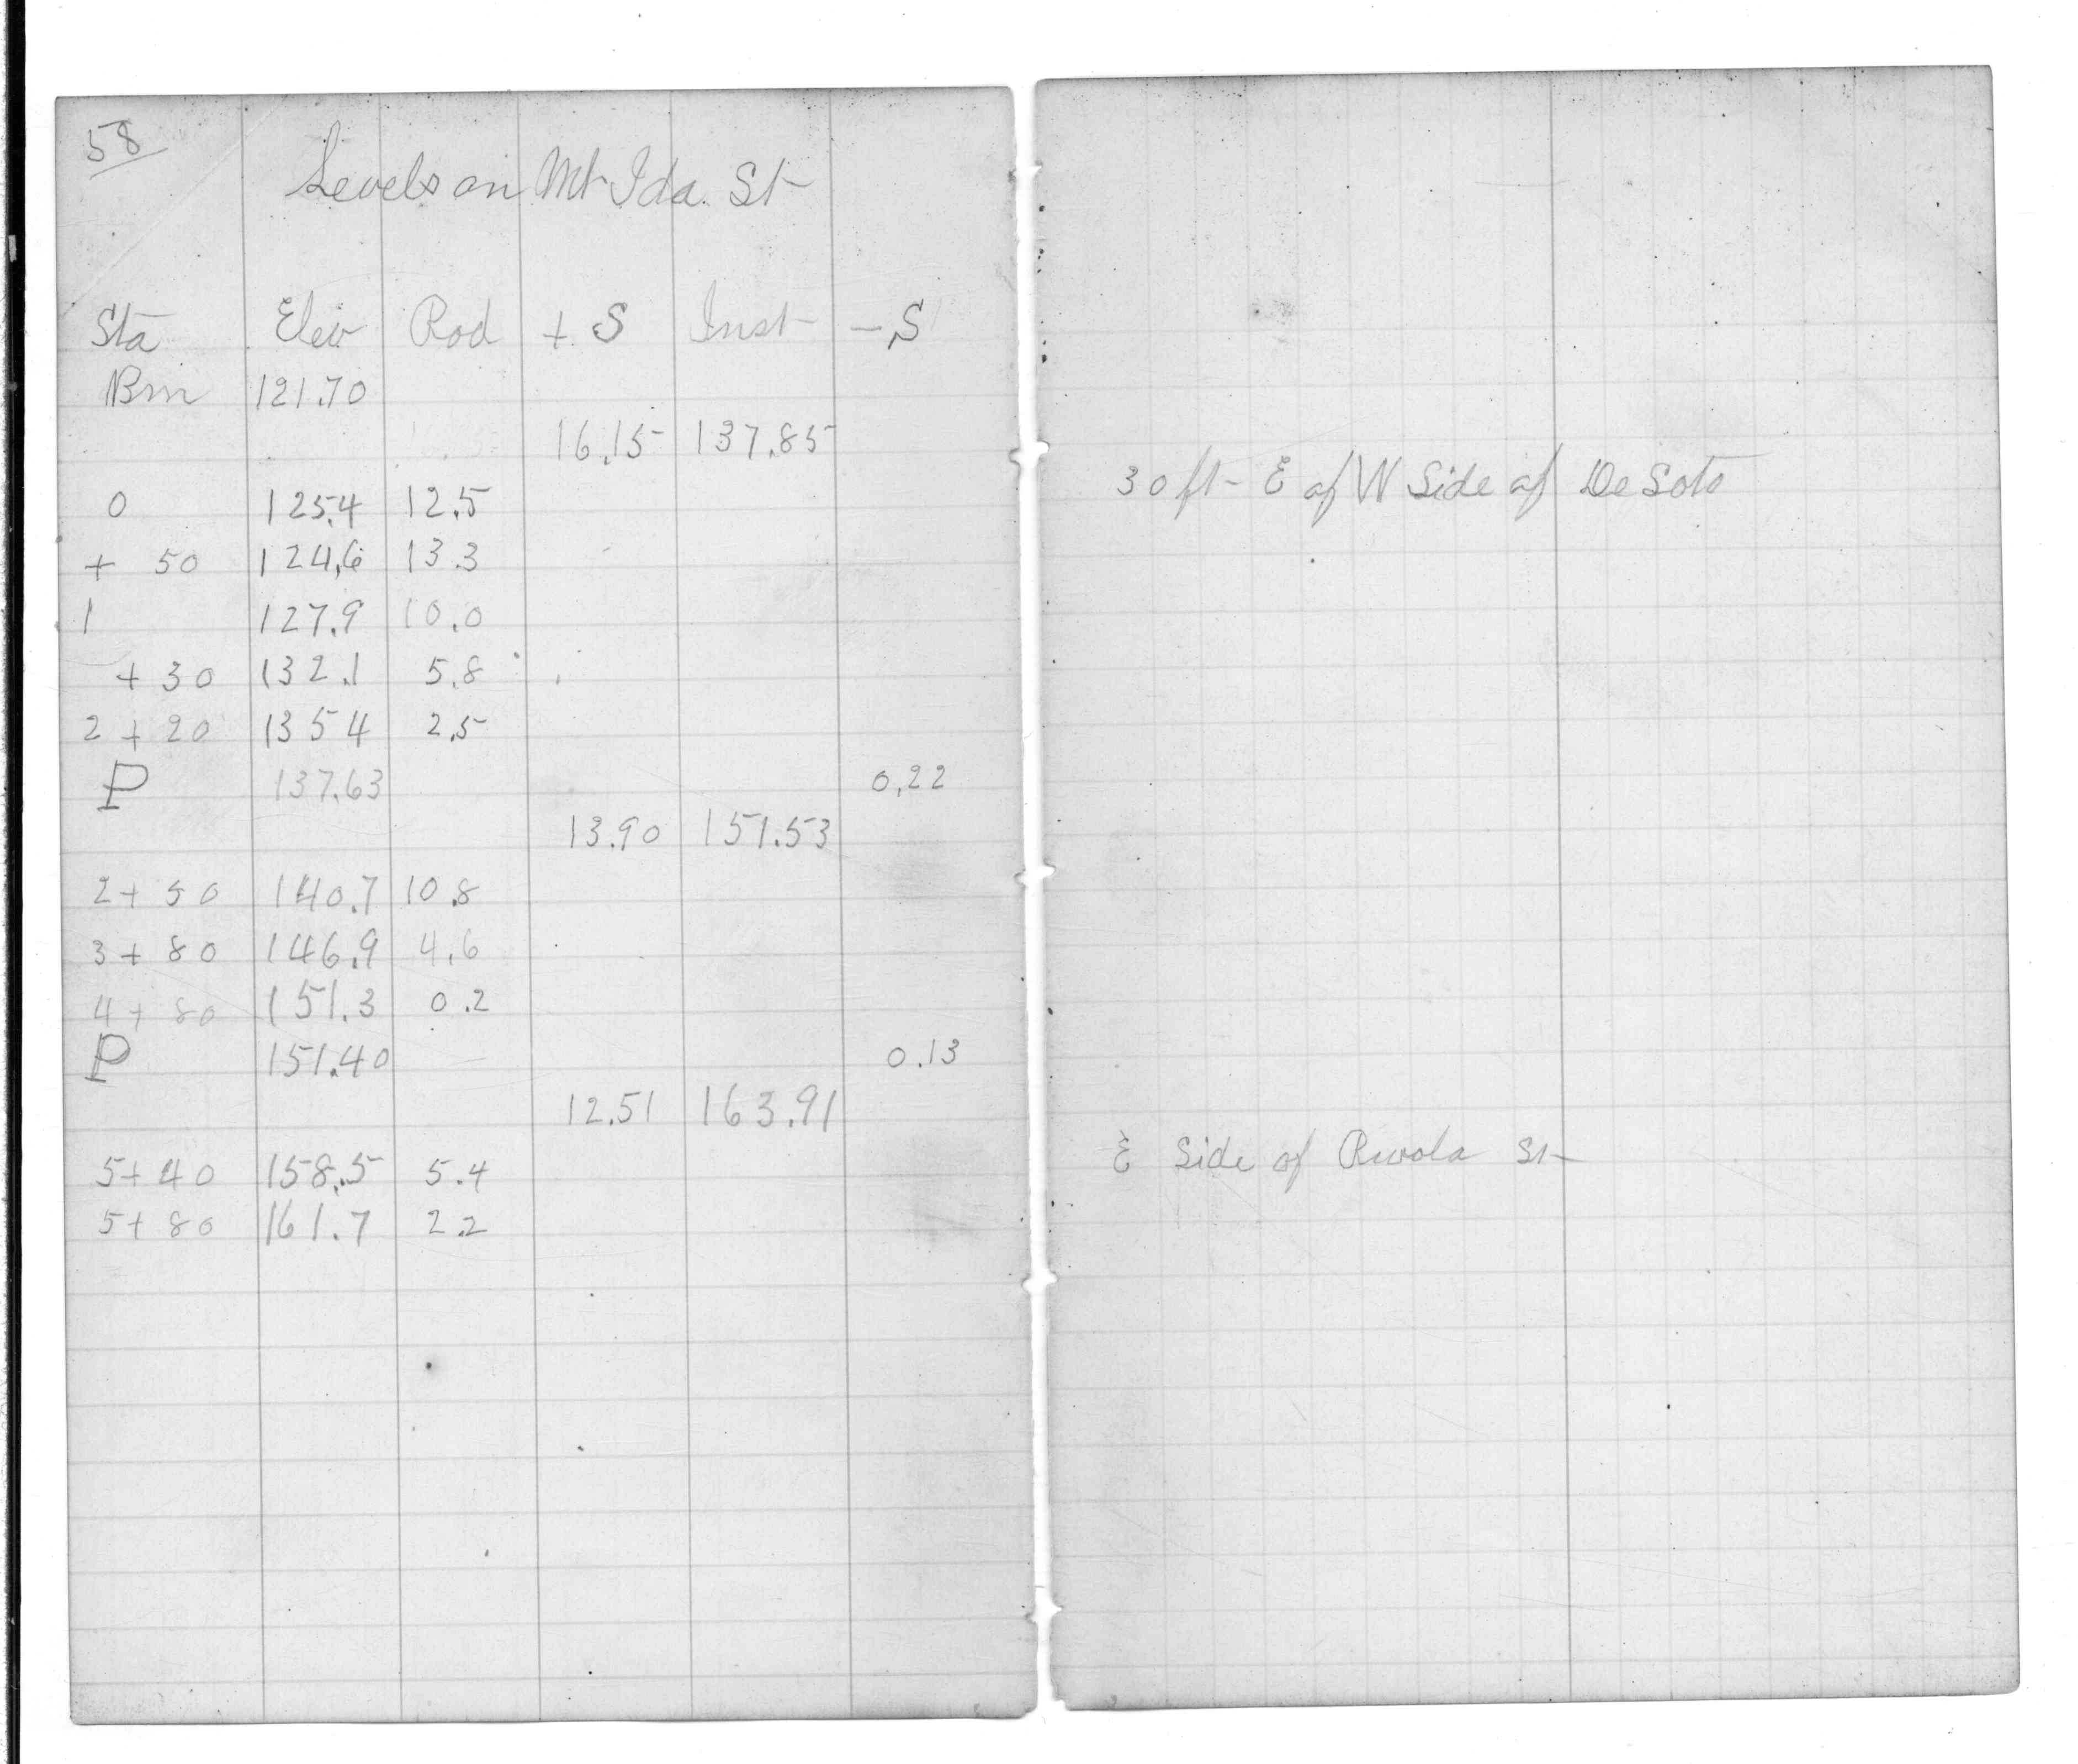 58
Levels on Mt Ida. St
Sta Elev Rod + S Inst - S
Bm 121.70
16.15 137.85
0 125.4 12.5
30 ft - E of W Side of De Soto
+ 50 124.6 13.3
1 127.9 10.0
+ 30 132.1 5.8
2 + 20 135 4 2.5
P 137.63 0.22
13.90 151.53
2 + 50 140.7 10.8
3 + 80 146.9 4.6
4 + 80 151.3 0.2
P 151.40 0.13
12.51 163.91
5 + 40 158.5 5.4
E Side of St
5 + 80 161.7 2.2